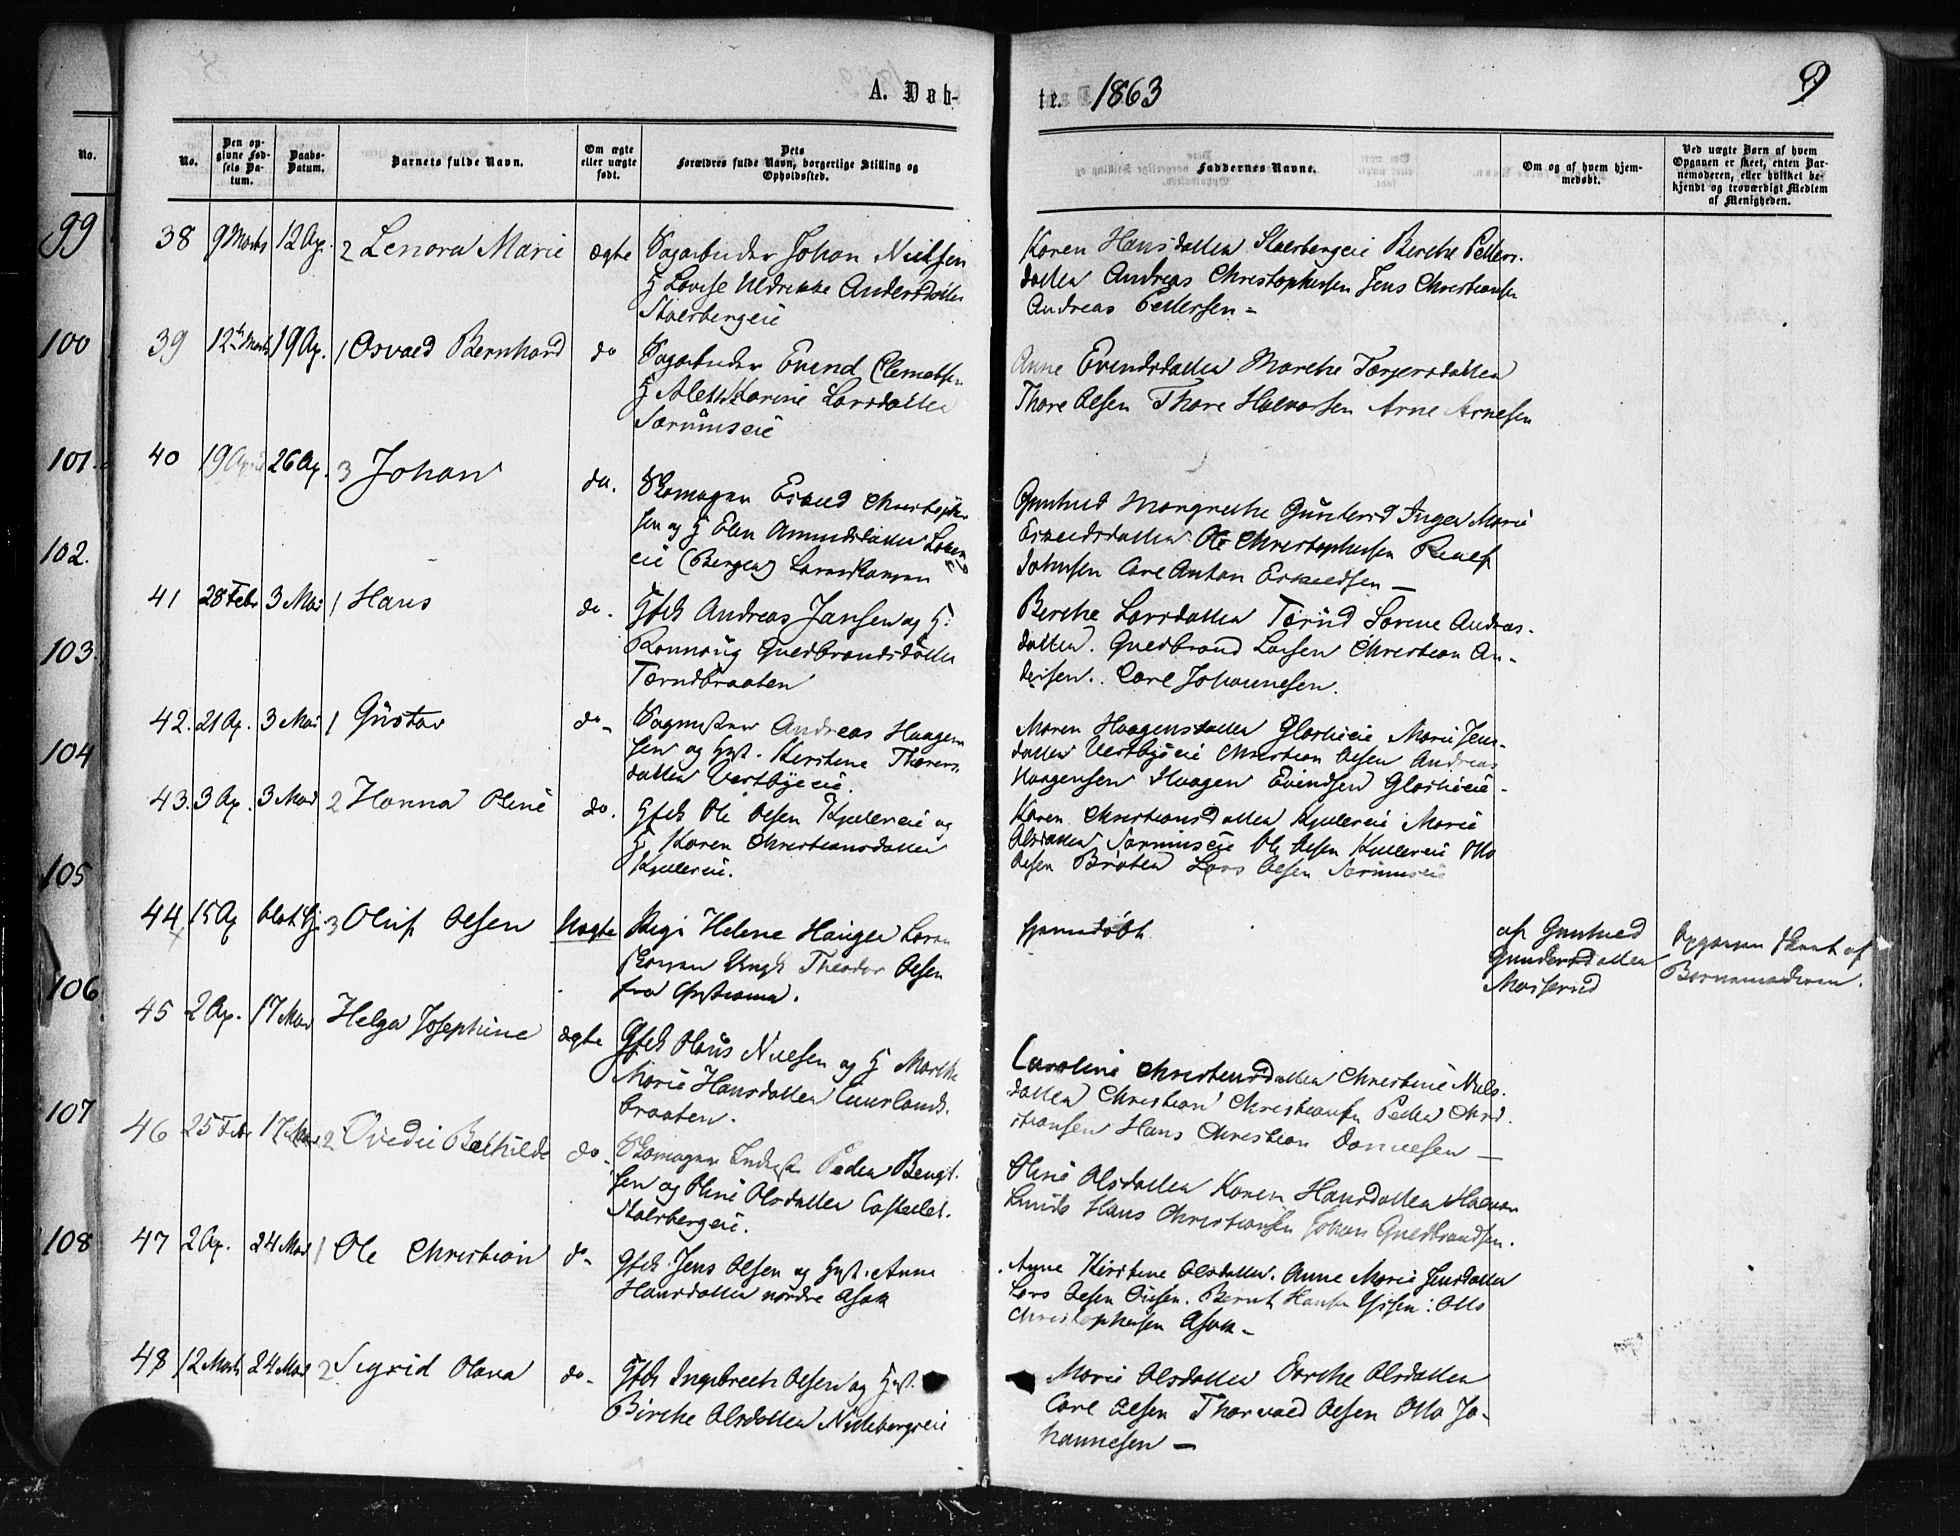 A. Dab-
te. 1863
9
No.
No.
Den op-
givne Fød-
sels Da-
tum.
Daabs-
Datum.
Barnets fulde Navn.
Om ægte
eller uægte
født.
Dets
Forældres fulde Navn, borgerlige Stilling og
Opholdssted.
Faddernes Navne.
Om og af hvem hjem-
medøbt.
Ved uægte Børn af hvem
Opgaven er skeet, enten Bar-
nemoderen, eller hvilket be-
kjendt og troværdigt Medlem
af Menigheden.
99
100
101.
102.
103.
104
105
106
107
108
38 9 Marts 12 Ap. 2 Lenora Marie ægte Sagarbeider Johan Nielsen
H Lovise Uldrikke Andersdatter
Stalsbergeie
Karen Hansdatter Stalsbergeie Berthe Petters-
datter Andreas Christophersen Jens Christiansen
Andreas Pettersen -
39 12te Marts 19 Ap. 1 Osvald Bernhard do Sagarbeider Evend Clemetsen
H Alet Karine Larsdatter
Sørumseie
Anne Evendsdatter Marthe Torgersdatter
Thore Olsen Thore Halvorsen Arne Arnesen
40 19 April 26 Ap. 3 Johan do. Skomager Christoph-
sen og H Elen Amundsdatter
eie (Bergen)
Margrethe Inger Marie
datter Ole Christophersen
Johnsen Carl Anton
41 28 Febr 3 Mai 1 Hans do. Gbk Andreas Jansen og H.
Rønnaug Guldbrandsdatter
Tærudbraaten
Berthe Larsdatter Tærud Sørine Andreas-
datter. Guldbrand Larsen Christian An-
dersen. Carl Johannesen.
42. 21 Ap. 3 Mai 1 Gustav do- Sagmester Andreas Haagen-
sen og Hust. Kirstine Thorers-
datter Vestbyeie.
Maren Haagensdatter Marie Jens-
datter Vestbyeie Christian Olsen Andreas
Haagensen Haagen Evindsen
43. 3 Ap. 3 Mai 2 Hanna Oline do. Gbk Ole Olsen Kjellereie og
H Karen Christiansdatter
Kjellereie.
Karen Christiansdatter Kjellereie Marie
Olsdatter Sørumseie Ole Olsen Kjellereie Otto
Olsen Bråten Lars Olsen Sørumseie
44 15 Ap 3 Oluf Olsen Uægte Pige Helene Hauger
Ungk Theodor Olsen
fra Christiania.
hjemmedøbt.
af Gunhild
Gundersdatter
Mosserud
Opgaven skeet af
Barnemoderen.
45 2 Ap. 17 Mai Helga Josephine ægte Gbk Olaus Nielsen og H Marthe
Marie Hansdatter
braaten.
Caroline Christensdatter Christine Niels-
datter Christian Christiansen Peder Chri-
stiansen Hans Christian Danielsen -
46 25 Febr 17 Mai 2 Ovedie Bathilde do- Skomager Peder Bengt-
sen og Oline Olsdatter Castellet.
Stalsbergeie.
Oline Olsdatter Karen Hansdatter Halvor
Hans Christiansen Johan Guldbrandsen.
47 2 Ap. 24 Mai 1 Ole Christian do- Gbk Jens Olsen og Hust. Anne
Hansdatter nordre Asak
Anne Kirstine Olsdatter. Anne Marie Jensdatter
Lars Olsen Bernt Hansen Otto
Christophersen Asak -
48 12 Marts 24 Mai 2 Sigrid Olava do- Gbk Ingebreth Olsen og Hust.
Birthe Olsdatter Nittebergseie
Marie Olsdatter Berthe Olsdatter
Carl Olsen Thorvald Olsen Otto Jo-
hannesen -